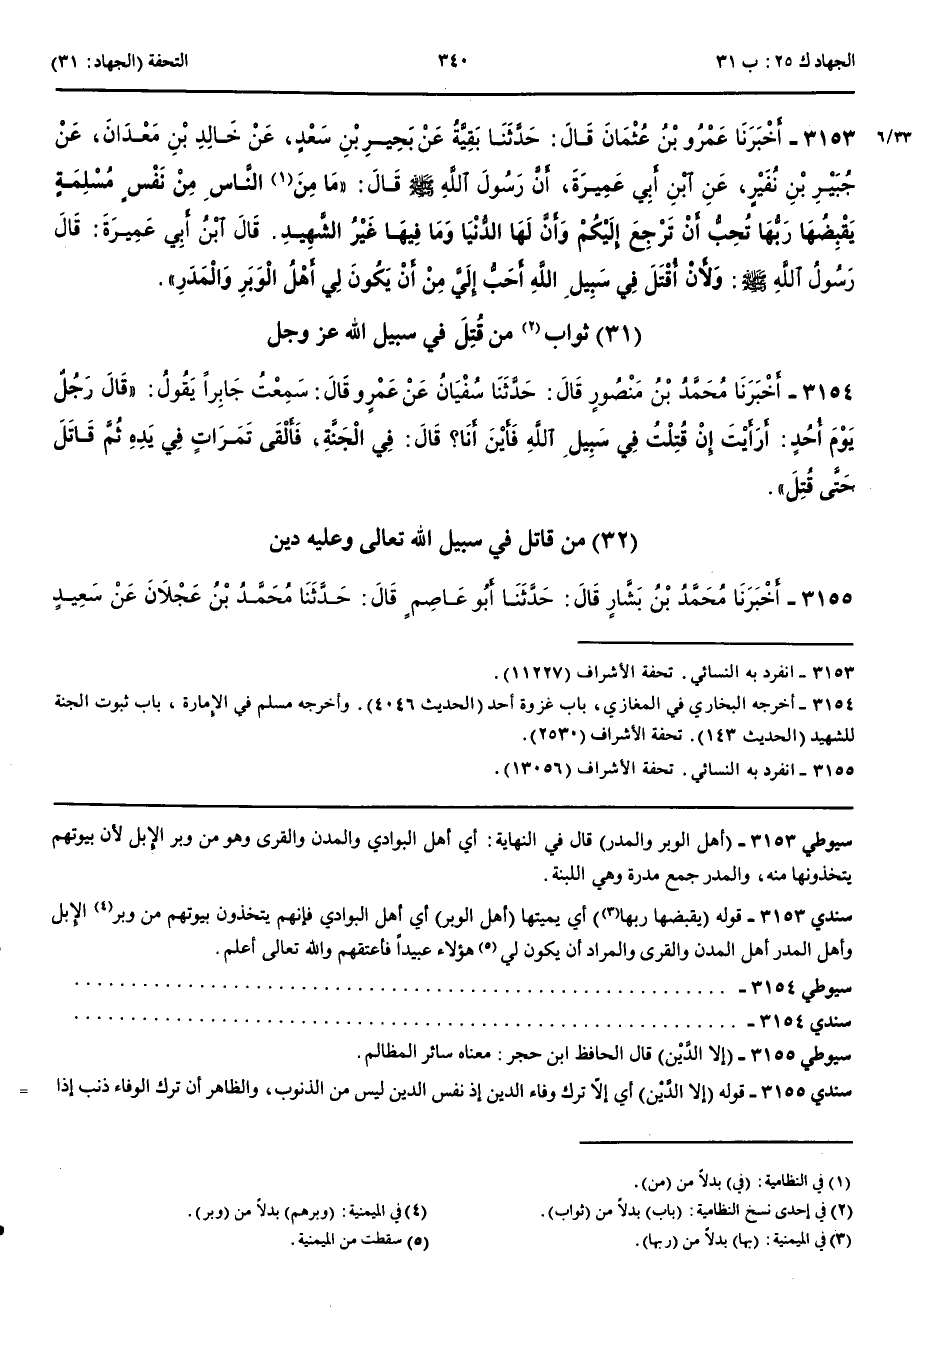 الجهاد ك ٢٥: ب ٣١ ٣٤٠ التحفة (الجهاد: ٣١)
٦/٣٣ ٣١٥٣ ـ أَخْبَرَنَا عَمْرُو بْنُ عُثْمَانَ قَالَ: حَدَّثَنَا بَقِيَّةُ عَنْ بَحِيرِ بْنِ سَعْدٍ، عَنْ خَالِدِ بْنِ مَعْدَانَ، عَنْ
جُبَيْرِ بْنِ نُفَيْرٍ، عَنِ ٱبْنِ أَبِي عَمِيرَةَ، أَنَّ رَسُولَ ٱللَّهِ ﷺ قَالَ: «مَا مِنَ(١) النَّاسِ مِنْ نَفْسٍ مُسْلِمَةٍ
يَقْبِضُهَا رَبُّهَا تُحِبُّ أَنْ تَرْجِعَ إِلَيْكُمْ وَأَنَّ لَهَا الدُّنْيَا وَمَا فِيهَا غَيْرُ الشَّهِيدِ. قَالَ ٱبْنُ أَبِي عَمِيرَةَ: قَالَ
رَسُولُ ٱللَّهِ ﷺ: وَلَأَنْ أُقْتَلَ فِي سَبِيلِ اللَّهِ أَحَبُّ إِلَيَّ مِنْ أَنْ يَكُونَ لِي أَهْلُ الْوَبَرِ وَالْمَدَرِ».
(٣١) ثواب(٢) من قُتِلَ في سبيل الله عز وجل
٣١٥٤ ـ أَخْبَرَنَا مُحَمَّدُ بْنُ مَنْصُورٍ قَالَ: حَدَّثَنَا سُفْيَانُ عَنْ عَمْرٍو قَالَ: سَمِعْتُ جَابِراً يَقُولُ: «قَالَ رَجُلٌ
يَوْمَ أُحُدٍ: أَرَأَيْتَ إِنْ قُتِلْتُ فِي سَبِيلِ ٱللَّهِ فَأَيْنَ أَنَا؟ قَالَ: فِي الْجَنَّةِ، فَأَلْقَى تَمَرَاتٍ فِي يَدِهِ ثُمَّ قَاتَلَ
حَتَّى قُتِلَ».
(٣٢) من قاتل في سبيل الله تعالى وعليه دين
٣١٥٥ ـ أَخْبَرَنَا مُحَمَّدُ بْنُ بَشَّارٍ قَالَ: حَدَّثَنَا أَبُو عَاصِمٍ قَالَ: حَدَّثَنَا مُحَمَّدُ بْنُ عَجْلَانَ عَنْ سَعِيدٍ
٣١٥٣ ـ انفرد به النسائي. تحفة الأشراف (١١٢٢٧).
٣١٥٤ ـ أخرجه البخاري في المغازي، باب غزوة أحد (الحديث ٤٠٤٦). وأخرجه مسلم في الإمارة ، باب ثبوت الجنة
للشهيد (الحديث ١٤٣). تحفة الأشراف (٢٥٣٠).
٣١٥٥ ـ انفرد به النسائي. تحفة الأشراف (١٣٠٥٦).
سيوطي ٣١٥٣ ـ (أهل الوبر والمدر) قال في النهاية: أي أهل البوادي والمدن والقرى وهو من وبر الإبل لأن بيوتهم
يتخذونها منه، والمدر جمع مدرة وهي اللبنة.
سندي ٣١٥٣ ـ قوله (يقبضها ربها(٣)) أي يميتها (أهل الوبر) أي أهل البوادي فإنهم يتخذون بيوتهم من وبر(٤) الإبل
وأهل المدر أهل المدن والقرى والمراد أن يكون لي(٥) هؤلاء عبيداً فأعتقهم والله تعالى أعلم.
سيوطي ٣١٥٤ ـ ........................................................
سندي ٣١٥٤ ـ ........................................................
سيوطي ٣١٥٥ ـ (إلا الدَّيْن) قال الحافظ ابن حجر: معناه سائر المظالم.
سندي ٣١٥٥ ـ قوله (إلا الدَّيْن) أي إلّا ترك وفاء الدين إذ نفس الدين ليس من الذنوب، والظاهر أن ترك الوفاء ذنب إذا =
(١) في النظامية: (في) بدلاً من (من).
(٢) في إحدى نسخ النظامية: (باب) بدلاً من (ثواب). (٤) في الميمنية: (وبرهم) بدلاً من (وبر).
(٣) في الميمنية: (بها) بدلاً من (ربها). (٥) سقطت من الميمنية.